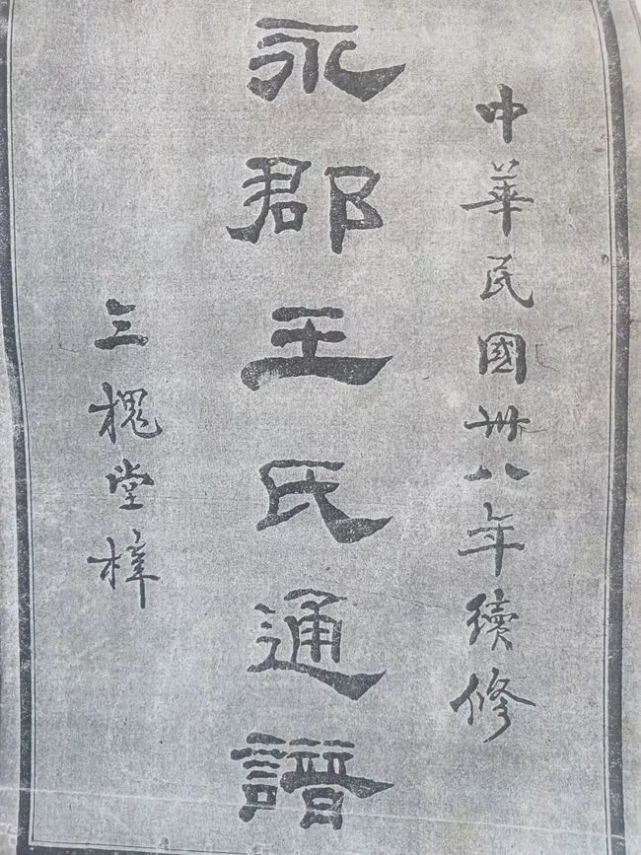 中華民國卅八年續修
永郡王氏通譜
三槐堂梓